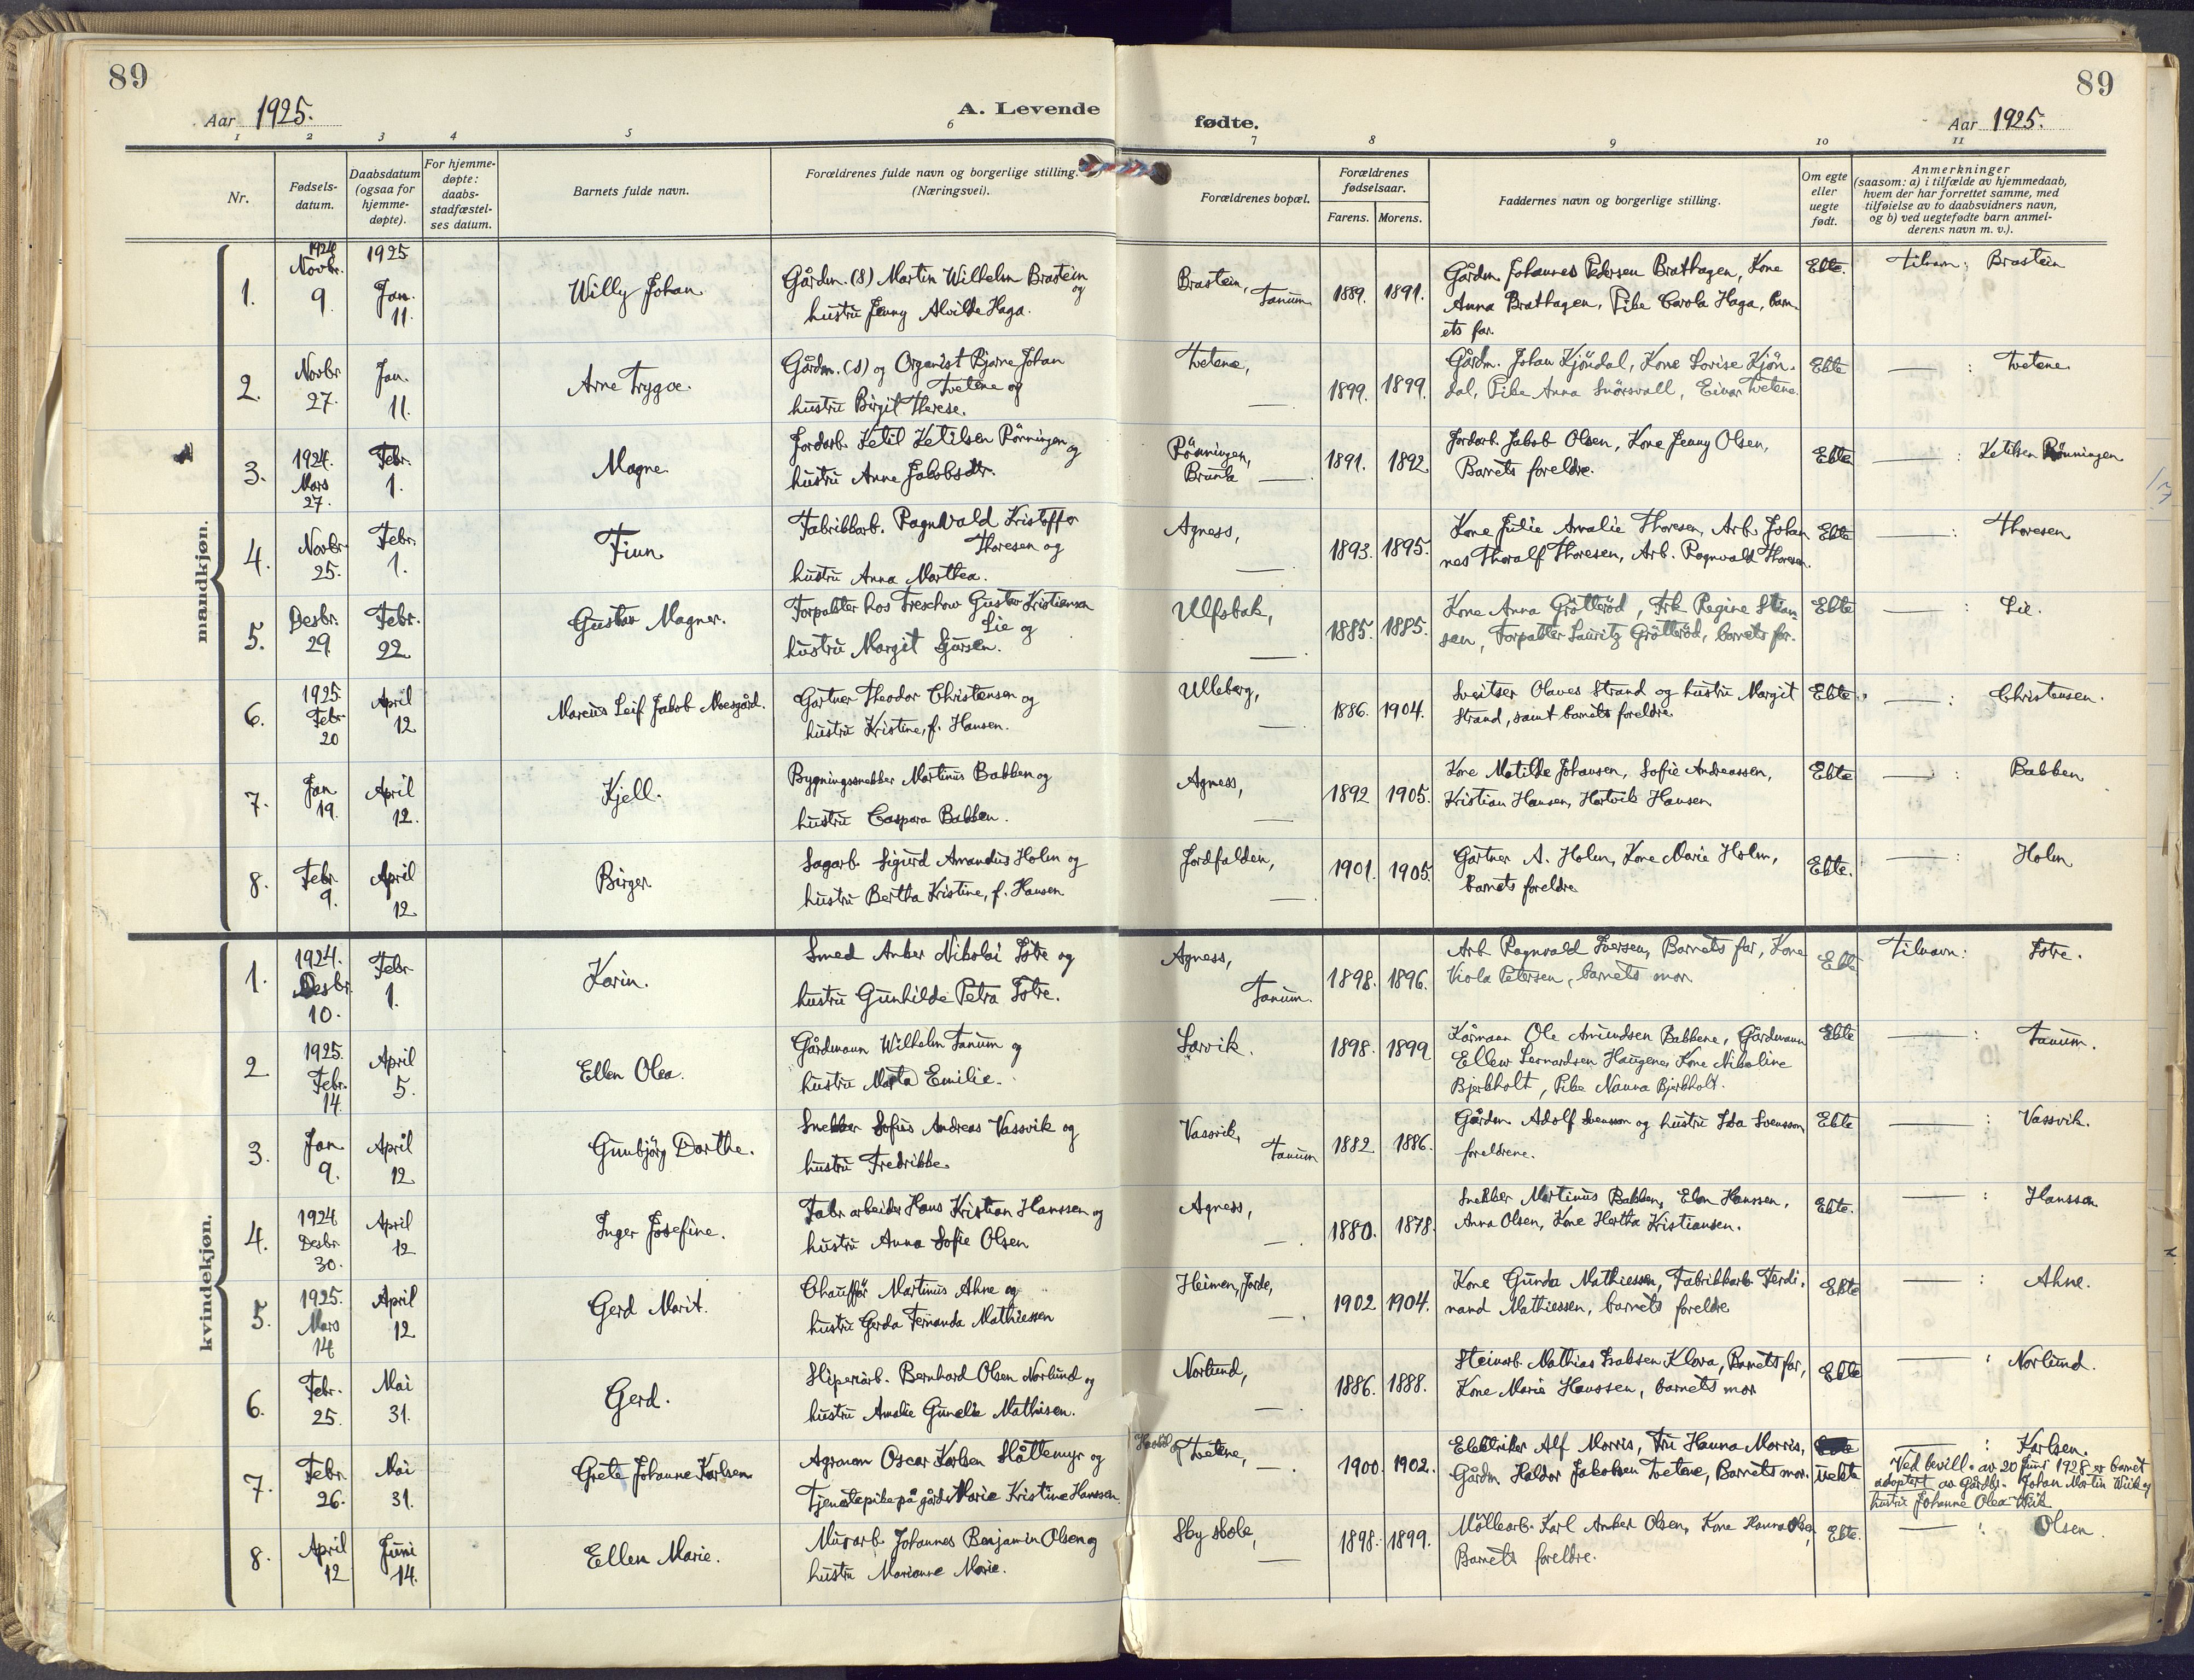 89
89
Aar 1925.
A. Levende
fødte.
Aar 1925.
1 2 3 4 5 6 7 8 9 10 11
Nr.
Fødsels-
datum.
Daabsdatum
(ogsaa for
hjemme-
døpte).
For hjemme-
døpte:
daabs-
stadfæstel-
ses datum.
Barnets fulde navn.
Forældrenes fulde navn og borgerlige stilling.
(Næringsvei).
Forældrenes bopæl.
Forældrenes
fødselsaar.
Farens. Morens.
Faddernes navn og borgerlige stilling.
Om egte
eller
uegte
født.
Anmerkninger
(saasom: a) i tilfælde av hjemmedaab,
hvem der har forrettet samme, med
tilføielse av to daabsvidners navn,
og b) ved uegtefødte barn anmel-
derens navn m. v.).
mandkjøn.
1.
1924
Novbr.
9.
1925
Jan.
11.
Willy Johan
Gårdm. (S) Martin Wilhelm Brastein
og
hustru Jenny Alvilde Haga.
Brastein,
Tanum
1889. 1891.
Gårdm. Johannes Pedersen Brathagen, Kone
Anna Brathagen, Pike Carola Haga, barn
ets far.
Ekte.
tilnavn: Brastein
2.
Novbr
27.
Jan.
11.
Arne Trygve.
Gårdm. (S) og Organist Bjarne Johan
Tvetene og
hustru Birgit Therese.
Tvetene,
—
1899. 1899.
Gårdm. Johan Kjöndal, Kone Lovise Kjön-
dal, Pike Anna Snörsvall, Einar Tvetene.
Ekte
— : Tvetene
3.
1924.
Mars
27.
Febr.
1.
Magne
Jordarb. Ketil Ketilsen Rönningen
og
hustru Anne Jakobsdtr.
Rönningen,
Brunla —
1891. 1892
Jordarb. Jakob Olsen, Kone Jenny Olsen,
Barnets foreldre.
Ekte
— : Ketilsen Rönningen
4.
Novbr.
25.
Febr.
1.
Finn
Fabrikkarb. Ragnvald Kristoffer
Thoresen og
hustru Anna Marthea.
Agness,
—
1893. 1895.
Kone Julie Amalie Thoresen, Arb. Johan
nes Thoralf Thoresen, Arb. Ragnvald Thoresen.
Ekte
— : Thoresen
5.
Desbr.
29
Febr.
22
Gustav Magner.
Forpakter hos Treschow Gustav Kristiansen
Lie og
hustru Margit Sjursen.
Ulfsbak,
—
1885. 1885.
Kone Anna Grötteröd, Frk Regine Stian-
sen, Forpakter Lauritz Grötteröd, barnets far.
Ekte
— : Lie.
6.
1925
Febr.
20
April
12
Marcus Leif Jakob Moesgård.
Gartner Theodor Christensen og
hustru Kristine, f. Hansen.
Ulleberg,
—
1886. 1904.
Sveitser Olaves Strand og hustru Margit
Strand, samt barnets foreldre.
Ekte.
— : Christensen.
7.
Jan
19.
April
12.
Kjell.
Bygningssnekker Martinus Bakken og
hustru Caspara Bakken.
Agness,
—
1892 1905.
Kone Matilde Johansen, Sofie Andreassen,
Kristian Hansen, Hartvik Hansen
Ekte
— : Bakken
8.
Febr
9.
April
12
Birger
Sagarb. Sigurd Amandus Holm og
hustru Bertha Kristine, f. Hansen
Jordfalden,
—
1901. 1905.
Gartner A. Holm, Kone Marie Holm,
barnets foreldre
Ekte.
— : Holm
kvindekjøn.
1.
1924.
Desbr.
10.
Febr
1.
Karin.
Smed Anker Nikolai Istre og
hustru Gunhilde Petra Istre.
Agness,
Tanum.
1898. 1896.
Arb Ragnvald Iversen, Barnets far, Kone
Viola Petersen, barnets mor.
Ekte
Tilnavn: Istre.
2
1925.
Febr.
14.
April
5.
Ellen Olea.
Gårdmann Wilhelm Tanum og
hustru Marta Emilie.
Larvik.
1898. 1899
Kårmann Ole Amundsen Bakkene, Gårdmann
Ellew Leonardsen Haugene, Kone Nikoline
Bjerkholt, Pike Nanna Bjerkholt.
Ekte
— : Tanum.
3.
Jan
9.
April
12
Gunbjörg Dorthe.
Snekker Sofus Andreas Vassvik og
hustru Fredrikke.
Vassvik,
Tanum
1882 1886.
Gårdm. Adolf Svensson og hustru Ida Svensson
foreldrene.
Ekte
— : Vassvik.
4.
1924
Desbr.
30.
April
12
Inger Josefine.
Fabr arbeider Hans Kristian Hanssen og
hustru Anna Sofie Olsen
Agness,
—
1880. 1878.
Snekker Martinus Bakken, Elen Hanssen,
Anna Olsen, Kone Hertha Kristiansen.
Ekte.
— : Hanssen
5.
1925.
Mars
14
April
12
Gerd Marit.
Chauffør Martinus Ahne og
hustru Gerda Fernanda Mathiessen
Heimen, Jorde,
—
1902 1904.
Kone Gunda Mathiessen, Fabrikkarb. Ferdi.
nand Mathiessen, barnets foreldre
Ekte
— : Ahne.
6.
Febr.
25.
Mai
31.
Gerd.
Sliperiarb. Bernhard Olsen Norlund og
hustru Amalie Gunelie Mathisen.
Norlund,
—
1886. 1888.
Steinarb. Mathias Isaksen Klova, Barnets far,
Kone Marie Hanssen, barnets mor
Ekte
— : Norlund.
7.
Febr.
26.
Mai
31.
Grete Johanne Karlsen
Agronom Oscar Karlsen Slåttemyr og
Tjenestepike på gård Marie Kristine Hanssen.
Tvetene,
—
1900. 1902.
Elektriker Alf Morris, Fru Hanna Morris,
Gårdm. Haldor Jakobsen Tvetene, Barnets mor.
uekte
— : Karlsen.
Ved bevill. av 20 juni 1928 er barnet
adoptert av Gårdbr. Johan Martin Wiik og
hustru Johanne Olea Wiik
8.
April
12
Juni
14.
Ellen Marie.
Murarb. Johannes Benjamin Olsen og
hustru Marianne Marie.
Sky skole,
—
1898. 1899.
Möllearb. Karl Anker Olsen, Kone Hanna Olsen,
Barnets foreldre.
Ekte.
— : Olsen.